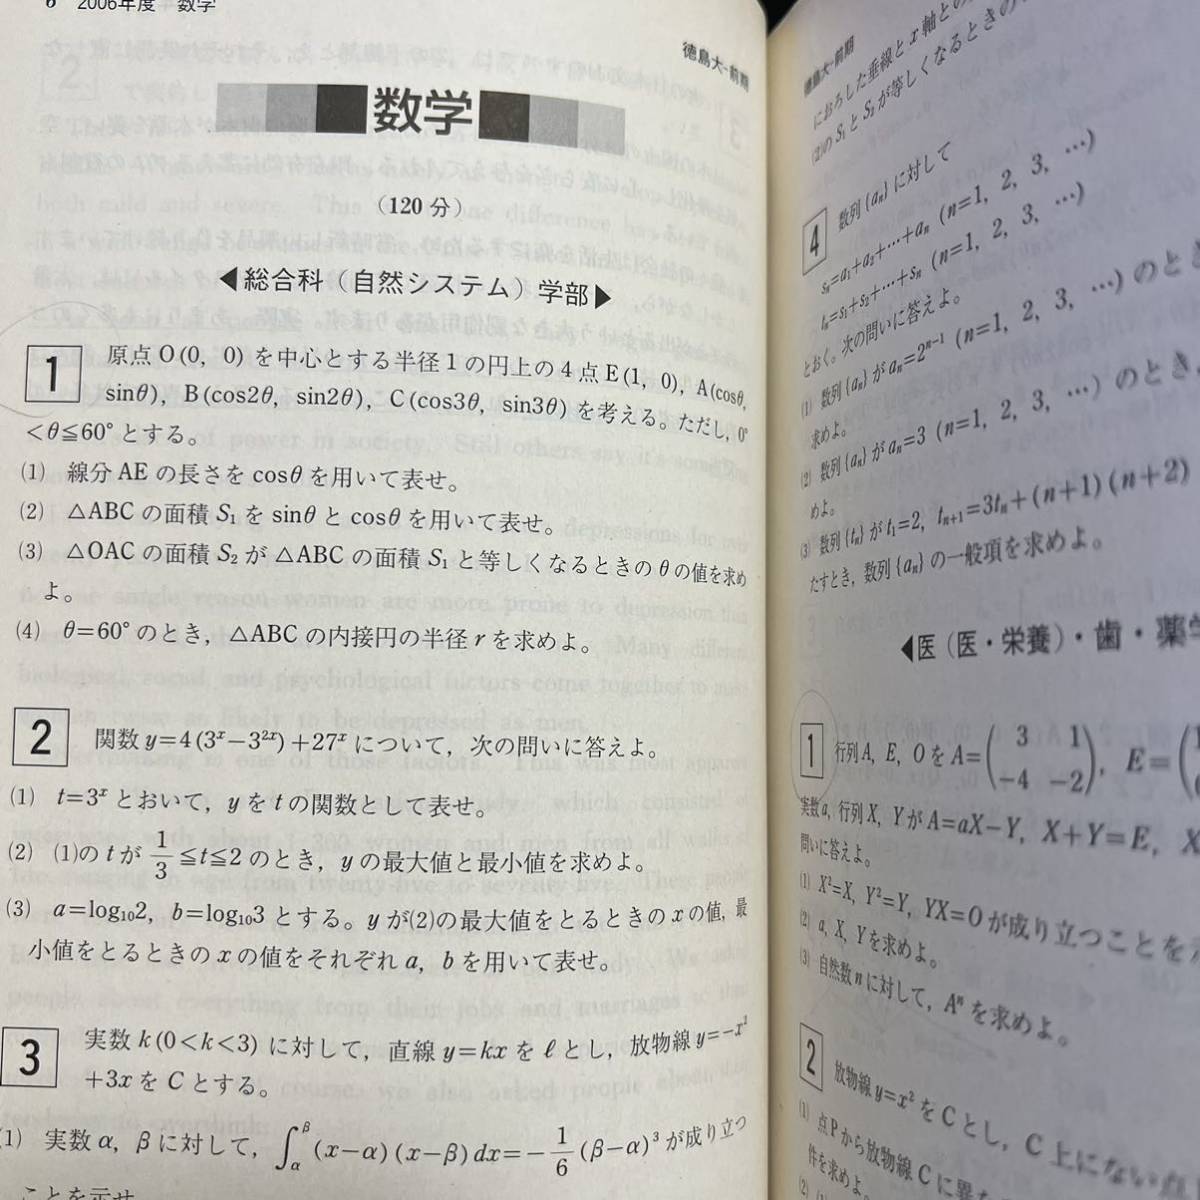 6 2006年度 数学
徳島大-前期
数学
(120分)
◀総合科(自然システム)学部▶
1 原点O(0, 0)を中心とする半径1の円上の4点E(1, 0), A(cosθ,
sinθ), B(cos2θ, sin2θ), C(cos3θ, sin3θ)を考える。ただし, 0°
<θ≦60°とする。
(1) 線分AEの長さをcosθを用いて表せ。
(2) △ABCの面積S₁をsinθとcosθを用いて表せ。
(3) △OACの面積S₂が△ABCの面積S₁と等しくなるときのθの値を求め
よ。
(4) θ=60°のとき, △ABCの内接円の半径rを求めよ。
2 関数y=4(3ˣ−3²ˣ)+27ˣについて, 次の問いに答えよ。
(1) t=3ˣとおいて, yをtの関数として表せ。
(2) (1)のtが 1/3≦t≦2のとき, yの最大値と最小値を求めよ。
(3) a=log₁₀2, b=log₁₀3とする。yが(2)の最大値をとるときのxの値, 最
小値をとるときのxの値をそれぞれa, bを用いて表せ。
3 実数k(0<k<3)に対して, 直線y=kxをℓとし, 放物線y=−x²
+3xをCとする。
(1) 実数α, βに対して, ∫_α^β (x−α)(x−β)dx=−1/6(β−α)³が成り立つ
ことを示せ
徳島大-前期
におろした垂線とx軸との
(2)のS₁とS₂が等しくなるときの
4 数列{aₙ}に対して
sₙ=a₁+a₂+…+aₙ (n=1, 2, 3, …)
tₙ=s₁+s₂+…+sₙ (n=1, 2, 3, …)
とおく。次の問いに答えよ。
(1) 数列{aₙ}がaₙ=2ⁿ⁻¹ (n=1, 2, 3, …)のとき
求めよ。
(2) 数列{aₙ}がaₙ=3 (n=1, 2, 3, …)のとき,
めよ。
(3) 数列{tₙ}がt₁=2, tₙ₊₁=3tₙ+(n+1)(n+2)
たすとき, 数列{aₙ}の一般項を求めよ。
◀医(医・栄養)・歯・薬学
1 行列A, E, OをA=(3 1 −4 −2), E=(1 0
実数a, 行列X, YがA=aX−Y, X+Y=E, X
問いに答えよ。
(1) X²=X, Y²=Y, YX=Oが成り立つことを
(2) a, X, Yを求めよ。
(3) 自然数nに対して, Aⁿを求めよ。
2 放物線y=x²をCとし, C上にない点
(1) 点Pから放物線Cに異な
件を求めよ。
(2)